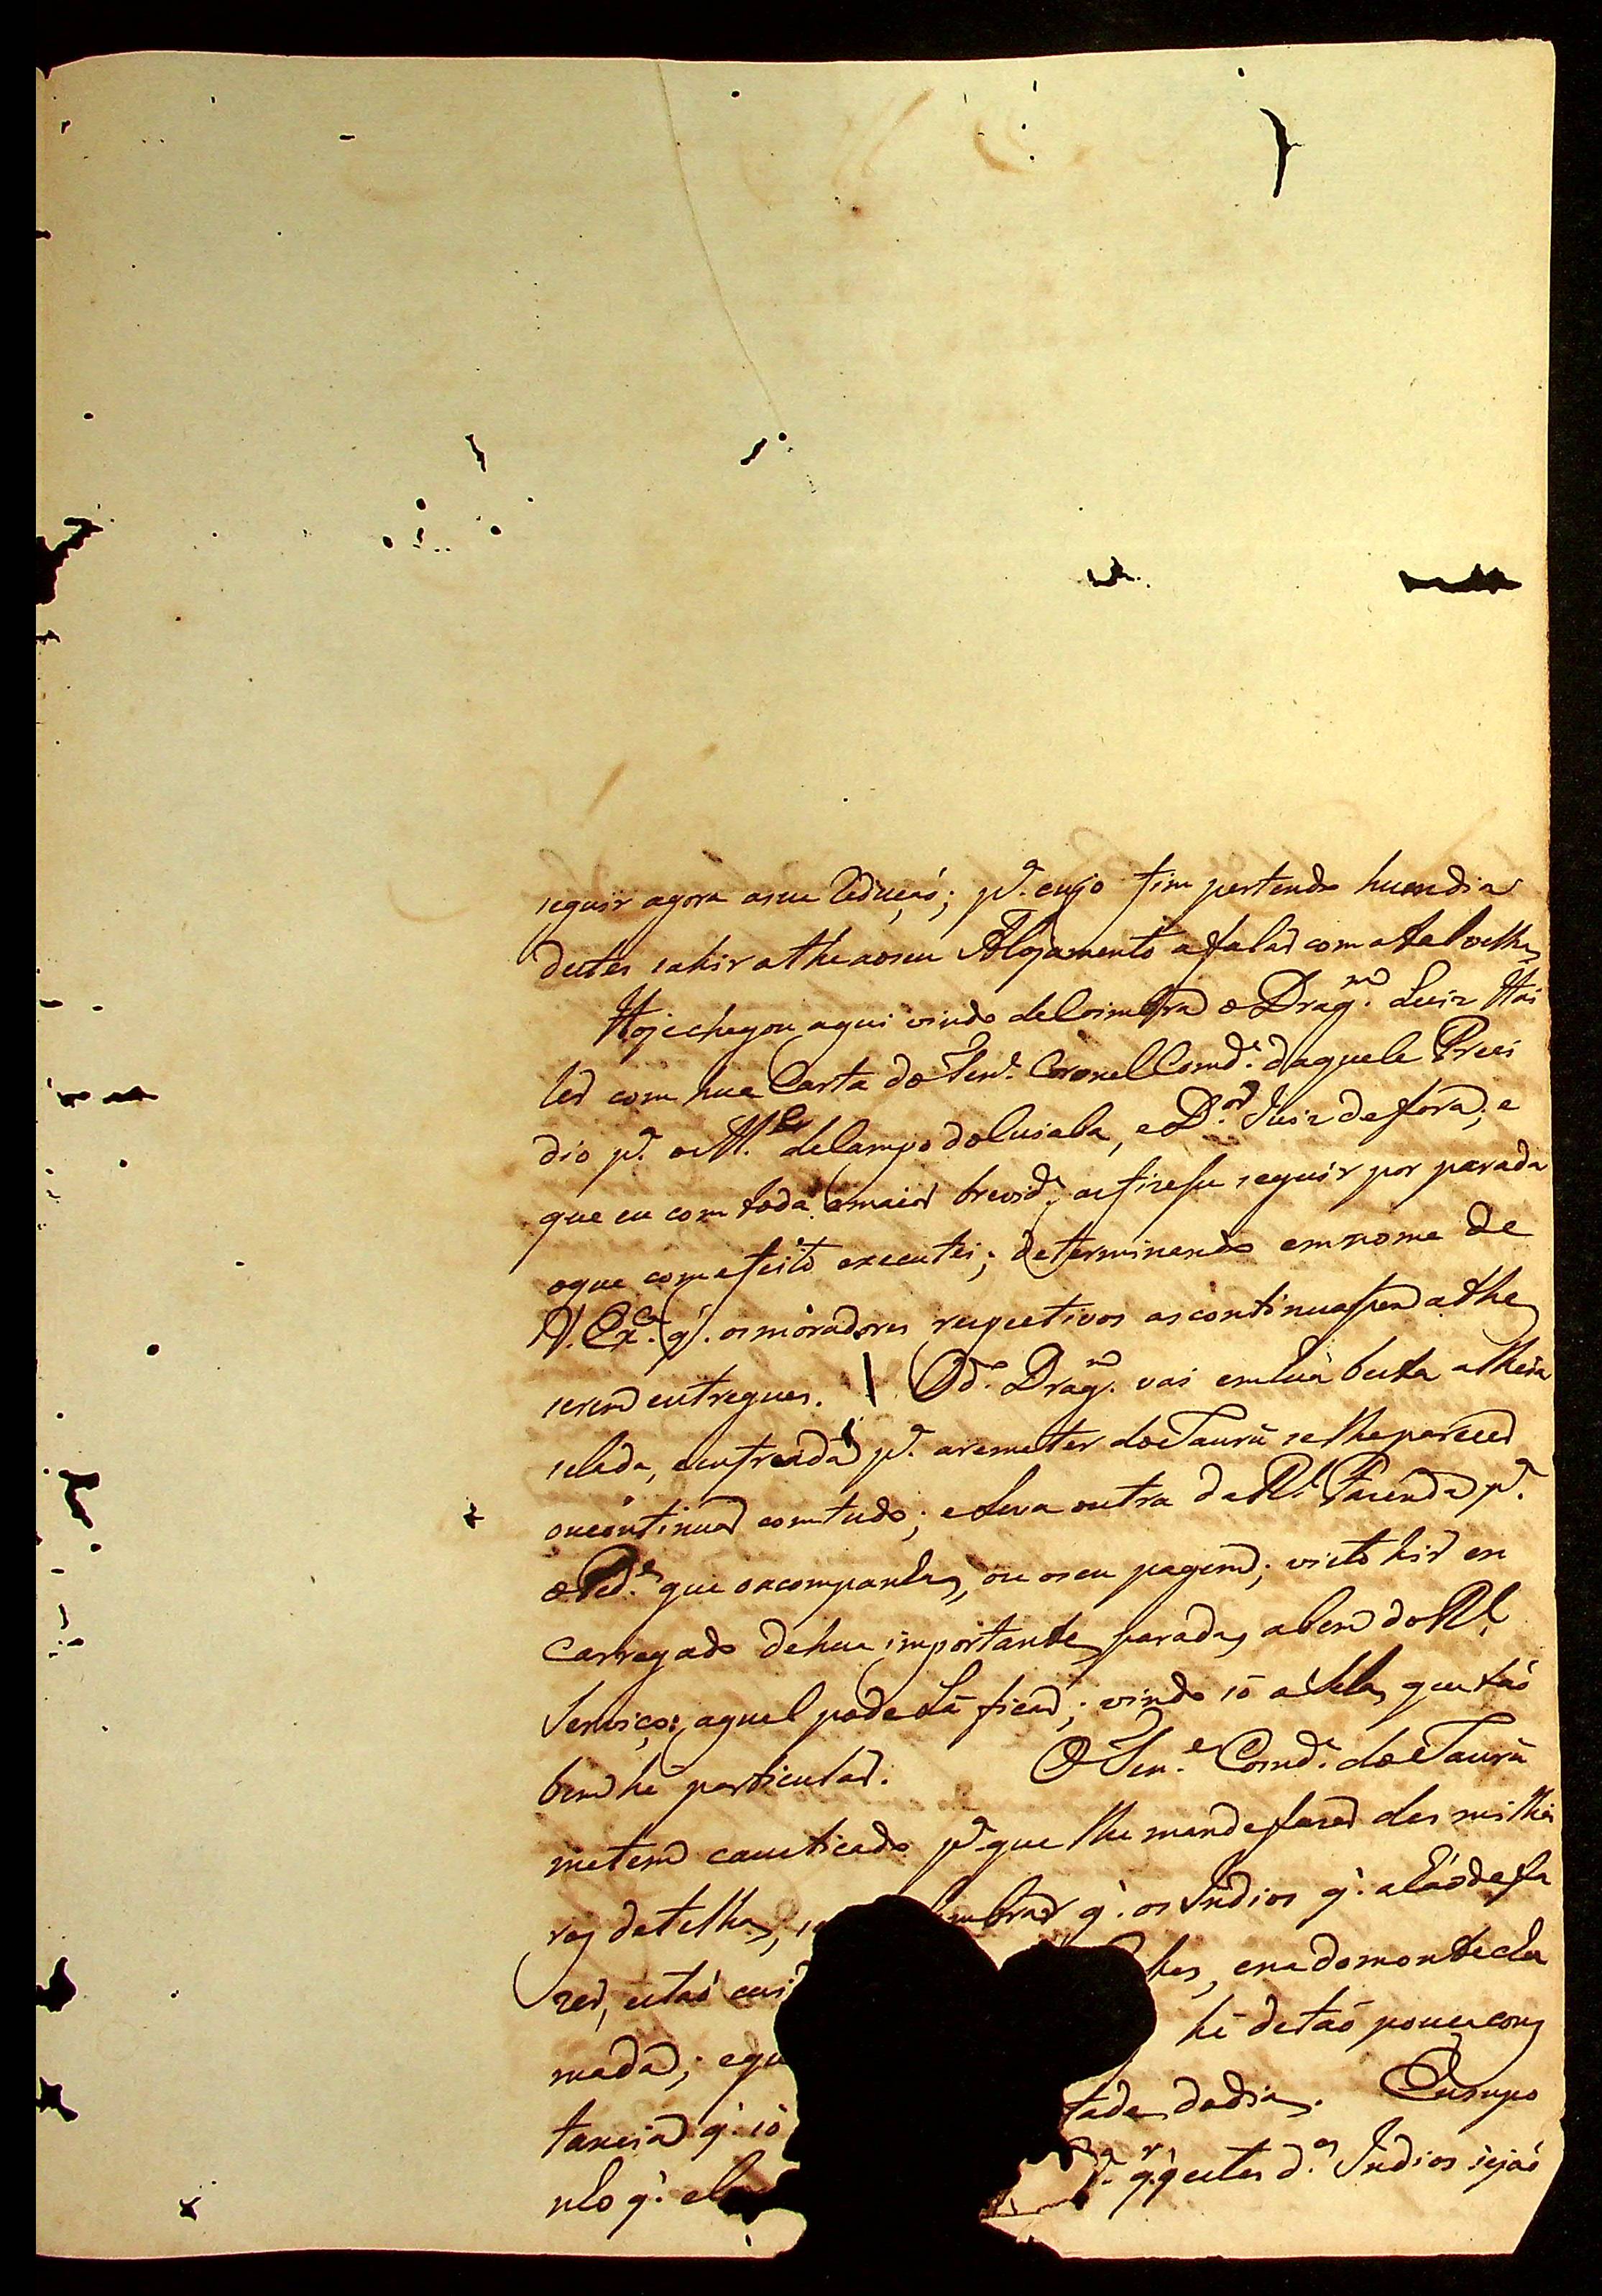 seguir agora asua redução; p.ª cujo fim pertendo hum dia
destes sahir athe aoseu Alojamento afalar com a tal velha
Hoje chegou aqui vindo de Coimbra o Drag.m Luiz Hai
ler com hua Carta do Ten.e Coronel Comd.e daquele Prezi
dio p.ª o M.e de Campo do Cuiaba, e D.or Juiz de fora; e
que eu com toda a maior brevid.e as fizesse seguir por parada
oque com efeito executei; determinando em nome de
V. Ex.ª q'. os moradores respectivos as continuassem athe
serem entregues. O d.o Drag.m vai em hua besta alheia
selada, e enfreada p.ª a remeter do Jaurú se lhe parecer
ou continuar com tudo; e leva outra da R.l Fazenda p.ª
o Ped.e que o acompanha, ou o seu pagem; visto hir en
carregado de hua importante parada, a bem do R.l
Serviço; aquel pode lá ficar; vindo só a sela, que tão
bem he particular. O Ten.e Comd.e do Jaurú
me tem causticado p.ª que lhe mande fazer des milhei
ros de telha, lembrar q'. os Indios q'. a hão de fa
zer, estaó hes, e na do monte cla
mada; e qu he de taó pouca cons
tancia q'. só tade do dia. Eu supo
nho q'. el q'. estes d.os Indios sejaó